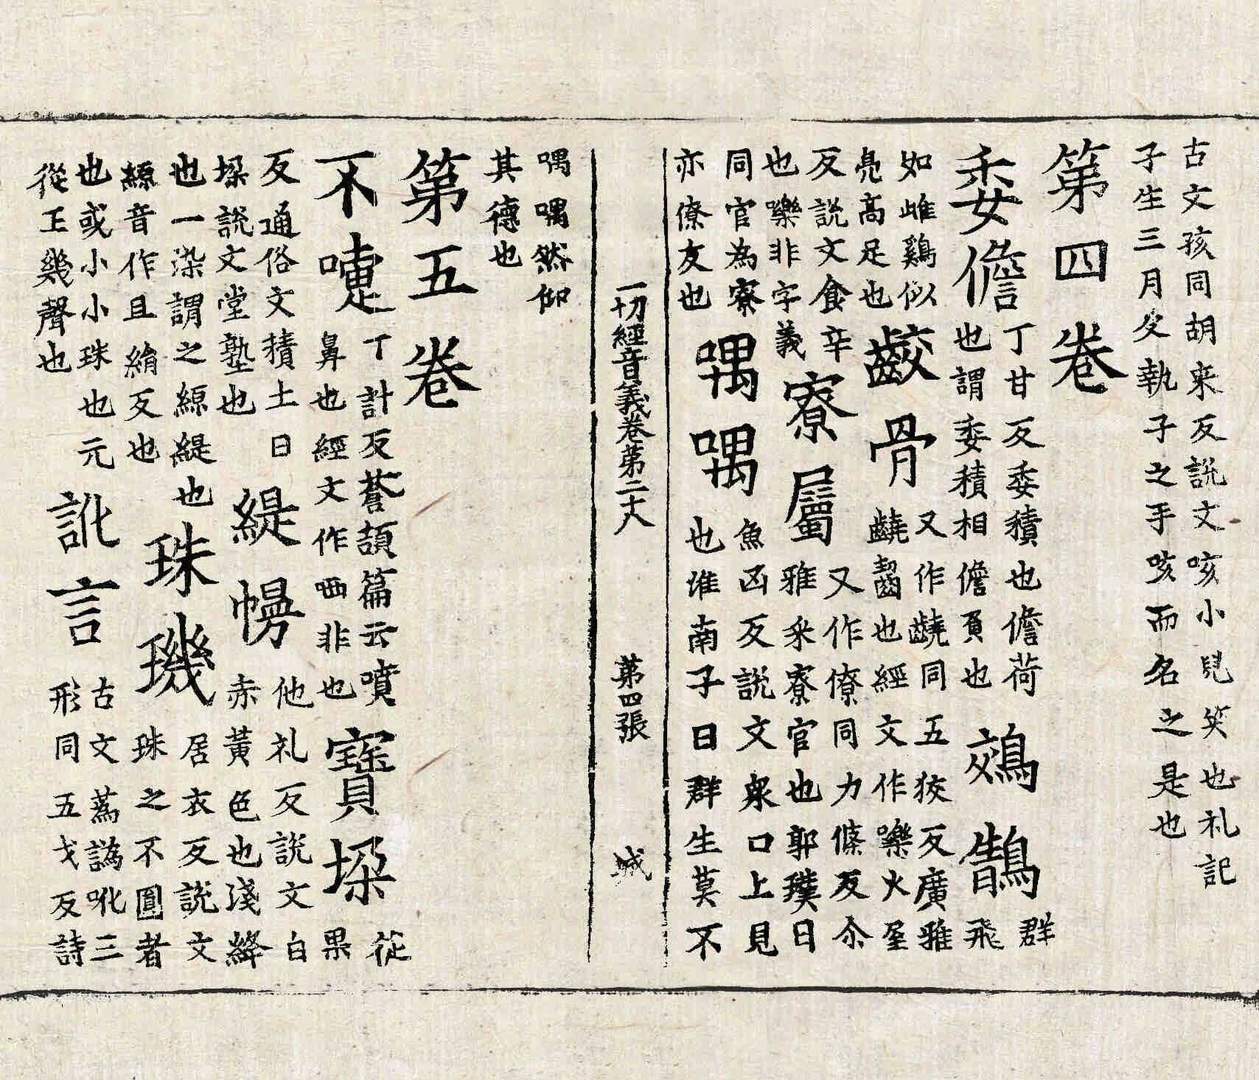 古文孩同胡来反說文咳小兒笑也礼記
子生三月父執子之手咳而名之是也
第四卷
委儋
丁甘反委積也儋荷
也謂委積相儋負也
鵁鶄
群飛
如雌鷄似
鳧高足也
齩骨
又作䶧同五狡反廣雅
䶧齧也經文作㘈火屋
反說文食辛
也㘈非字義
寮屬
又作僚同力條反尒
雅寀寮官也郭璞曰
同官為寮
亦僚友也
喁喁
魚凶反說文衆口上見
也淮南子曰群生莫不
一切經音義卷第二十八 第四張 城
喁喁然仰
其德也
第五卷
不嚏
丁計反蒼頡篇云噴
鼻也經文作㖷非也
寶垛
徒果
反通俗文積土曰
垛說文堂塾也
緹幔
他礼反說文白
赤黃色也淺絳
也一染謂之縓緹也
縓音作且絹反也
珠璣
居衣反說文
珠之不圓者
也或小小珠也元
從王幾聲也
訛言
古文蔿譌吪三
形同五戈反詩